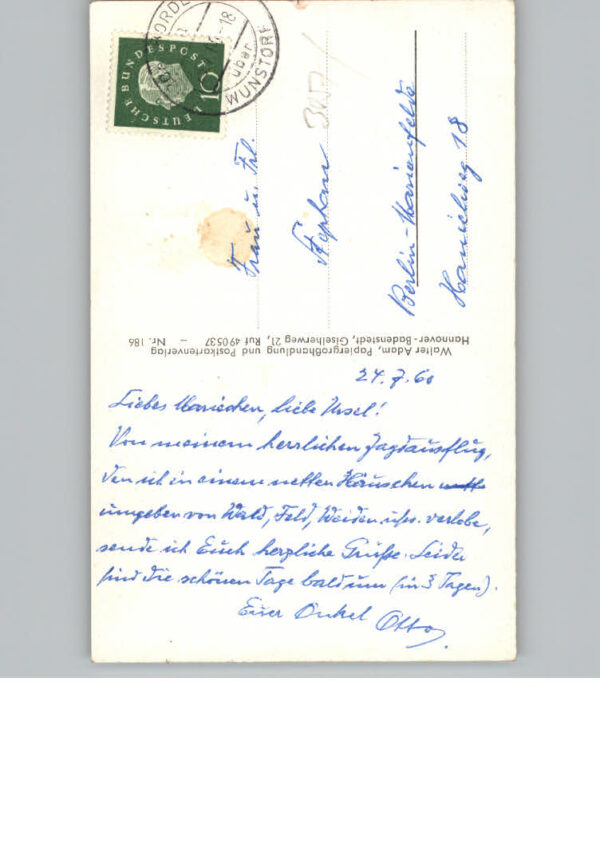 DEUTSCHE BUNDESPOST
10
über
WUNSTORF
Frau u. Frl.
Stephan
Berlin-Marienfelde
Walter Adam, Papiergroßhandlung und Postkartenverlag
Hannover-Badenstedt, Giselherweg 21, Ruf 490537 – Nr. 186
24.7.60
Liebes Mariechen, liebe Ursel!
Von meinem herrlichen Jagdausflug,
den ich in einem netten Häuschen
umgeben von Wald, Feld, Weiden usw. verlebe,
sende ich Euch herzliche Grüße. Leider
sind die schönen Tage bald um (in 3 Tagen).
Euer Onkel Otto